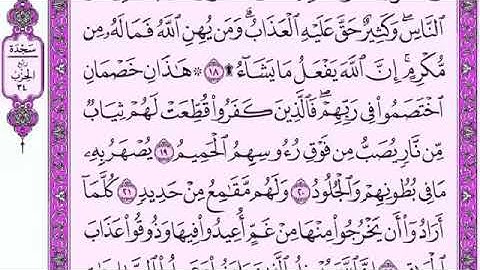 النَّاسِ ۖ وَكَثِيرٌ حَقَّ عَلَيْهِ الْعَذَابُ ۗ وَمَن يُهِنِ اللَّهُ فَمَا لَهُ مِن
مُّكْرِمٍ ۚ إِنَّ اللَّهَ يَفْعَلُ مَا يَشَاءُ ۩ ١٨ ۞ هَٰذَانِ خَصْمَانِ
اخْتَصَمُوا فِي رَبِّهِمْ ۖ فَالَّذِينَ كَفَرُوا قُطِّعَتْ لَهُمْ ثِيَابٌ
مِّن نَّارٍ يُصَبُّ مِن فَوْقِ رُءُوسِهِمُ الْحَمِيمُ ١٩ يُصْهَرُ بِهِ
مَا فِي بُطُونِهِمْ وَالْجُلُودُ ٢٠ وَلَهُم مَّقَامِعُ مِنْ حَدِيدٍ ٢١ كُلَّمَا
أَرَادُوا أَن يَخْرُجُوا مِنْهَا مِنْ غَمٍّ أُعِيدُوا فِيهَا وَذُوقُوا عَذَابَ
سَجْدَة
رُبع
الحزب
٣٤